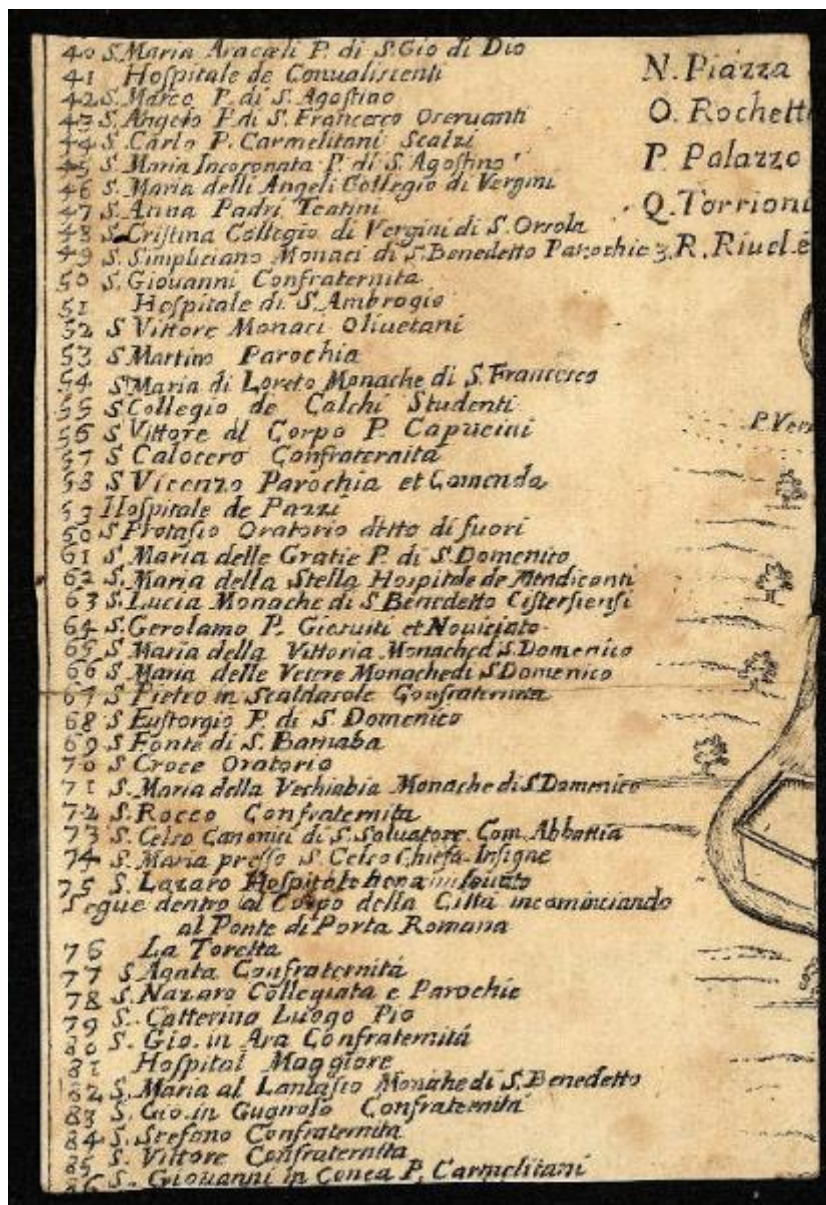 40 S. Maria Aracæli P. di S. Gio di Dio
41 Hospitale de Conualiscenti
42 S. Marco P. di S. Agostino
43 S. Angelo P. di S. Francesco Oseruanti
44 S. Carlo P. Carmelitani Scalzi
45 S. Maria Incoronata P. di S. Agostino
46 S. Maria delli Angeli Collegio di Vergini
47 S. Anna Padri Teatini
48 S. Cristina Collegio di Vergini di S. Orsola
49 S. Simpliciano Monaci di S. Benedetto Parochie 3.
50 S. Giouanni Confraternita
51 Hospitale di S. Ambrogio
52 S Vittore Monaci Oliuetani
53 S Martino Parochia
54 S Maria di Loreto Monache di S. Francesco
55 S Collegio de Calchi Studenti
56 S Vittore al Corpo P. Capucini
57 S Calocero Confraternita
58 S Vicenzo Parochia et Comenda
59 Hospitale de Pazzi
60 S Protasio Oratorio detto di fuori
61 S Maria delle Gratie P. di S. Domenico
62 S. Maria della Stella Hospitale de Mendicanti
63 S. Lucia Monache di S Benedetto Cistersiensi
64 S. Gerolamo P. Giesuiti et Nouiciato
65 S Maria della Vittoria Monache d S. Domenico
66 S Maria delle Vetere Monache di S Domenico
67 S Pietro in Scaldasole Confraternita
68 S Eustorgio P. di S. Domenico
69 S Fonte di S. Barnaba
70 S Croce Oratorio
71 S. Maria della Vechiabia Monache di S Domenico
72 S. Rocco Confraternita
73 S. Celso Canonici di S. Saluatore Com. Abbattia
74 S. Maria presso S. Celso Chiesa Insigne
75 S. Lazaro Hospitale hora
Segue dentro al Corpo della Città incominciando
al Ponte di Porta Romana
76 La Toretta
77 S Agata Confraternità
78 S. Nazaro Collegiata e Parochie
79 S. Catterino Luogo Pio
80 S. Gio. in Ara Confraternità
81 Hospital Maggiore
82 S. Maria al Lantasio Monache di S. Benedetto
83 S. Gio. in Gugirolo Confraternità
84 S. Stefano Confraternita
85 S. Vittore Confraternita
86 S. Giouanni in Conca P. Carmelitani
N. Piazza
O. Rochett
P. Palazzo
Q. Torrioni
R. Riuel. e
P. Ver